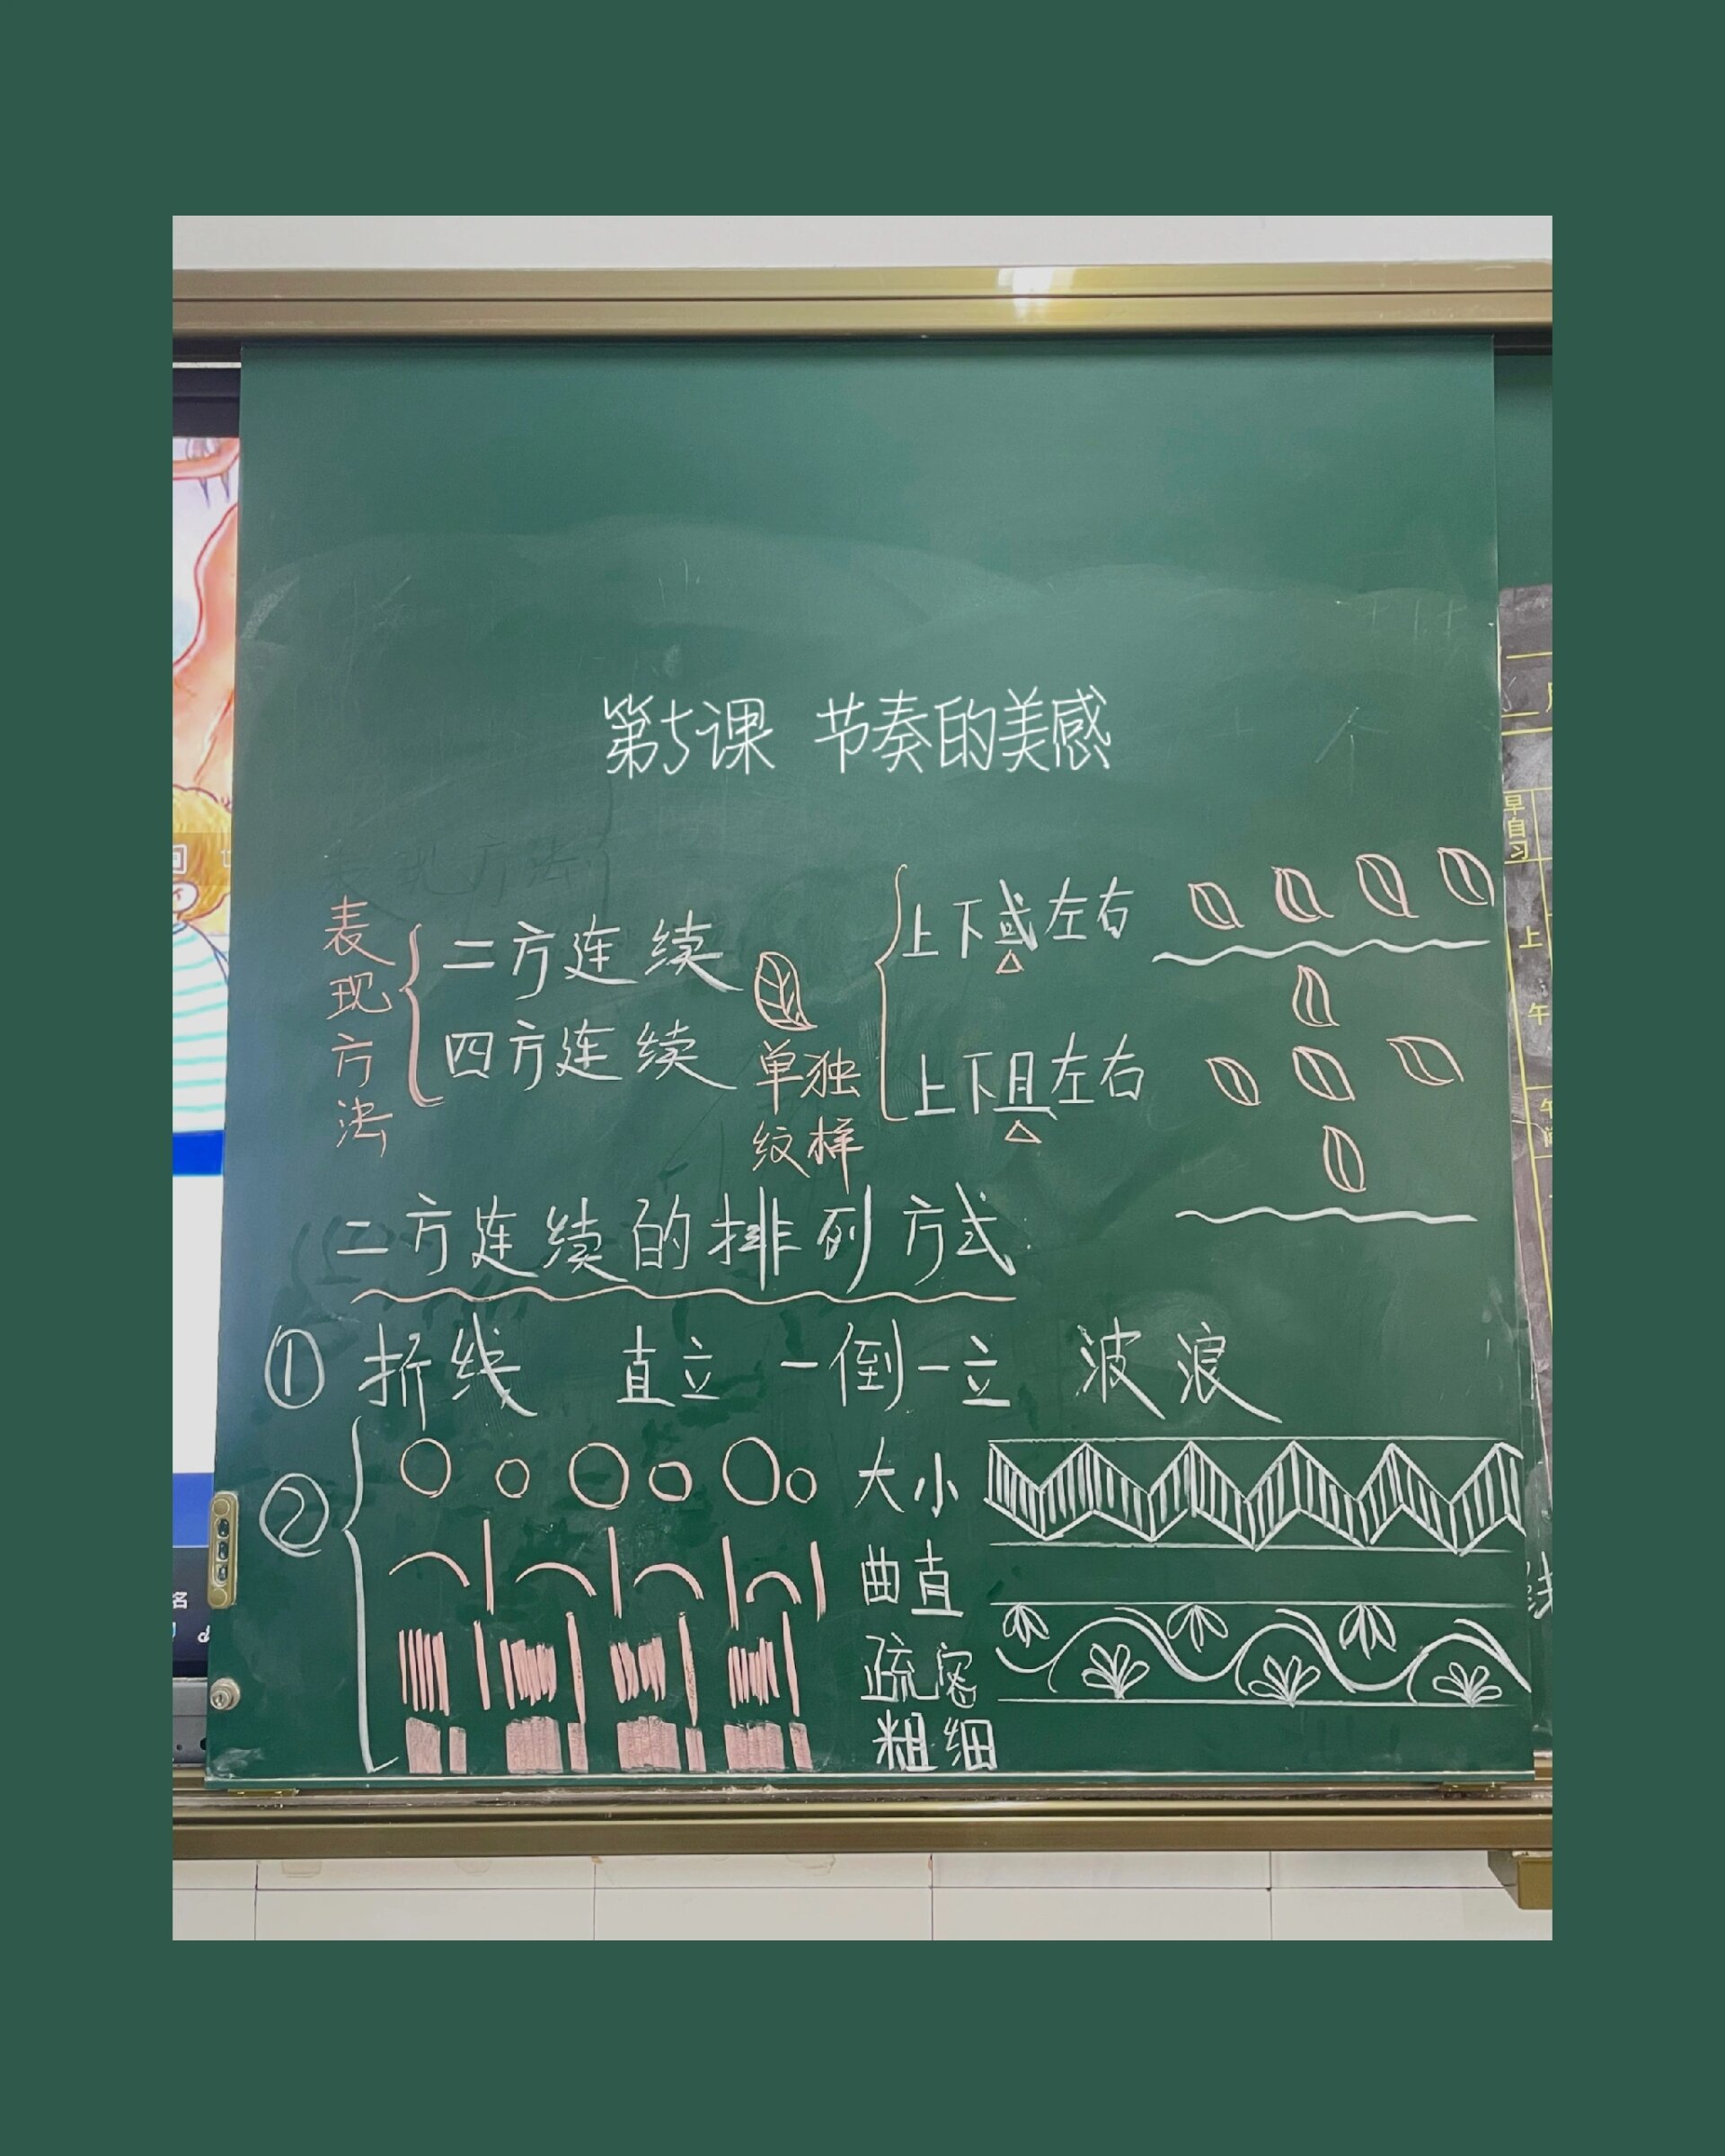 第5课 节奏的美感
表现方法
二方连续
四方连续
单独
纹样
上下或左右
上下且左右
二方连续的排列方式
① 折线 直立 一倒一立 波浪
②
大小
曲直
疏密
粗细
早自习
上
午
名